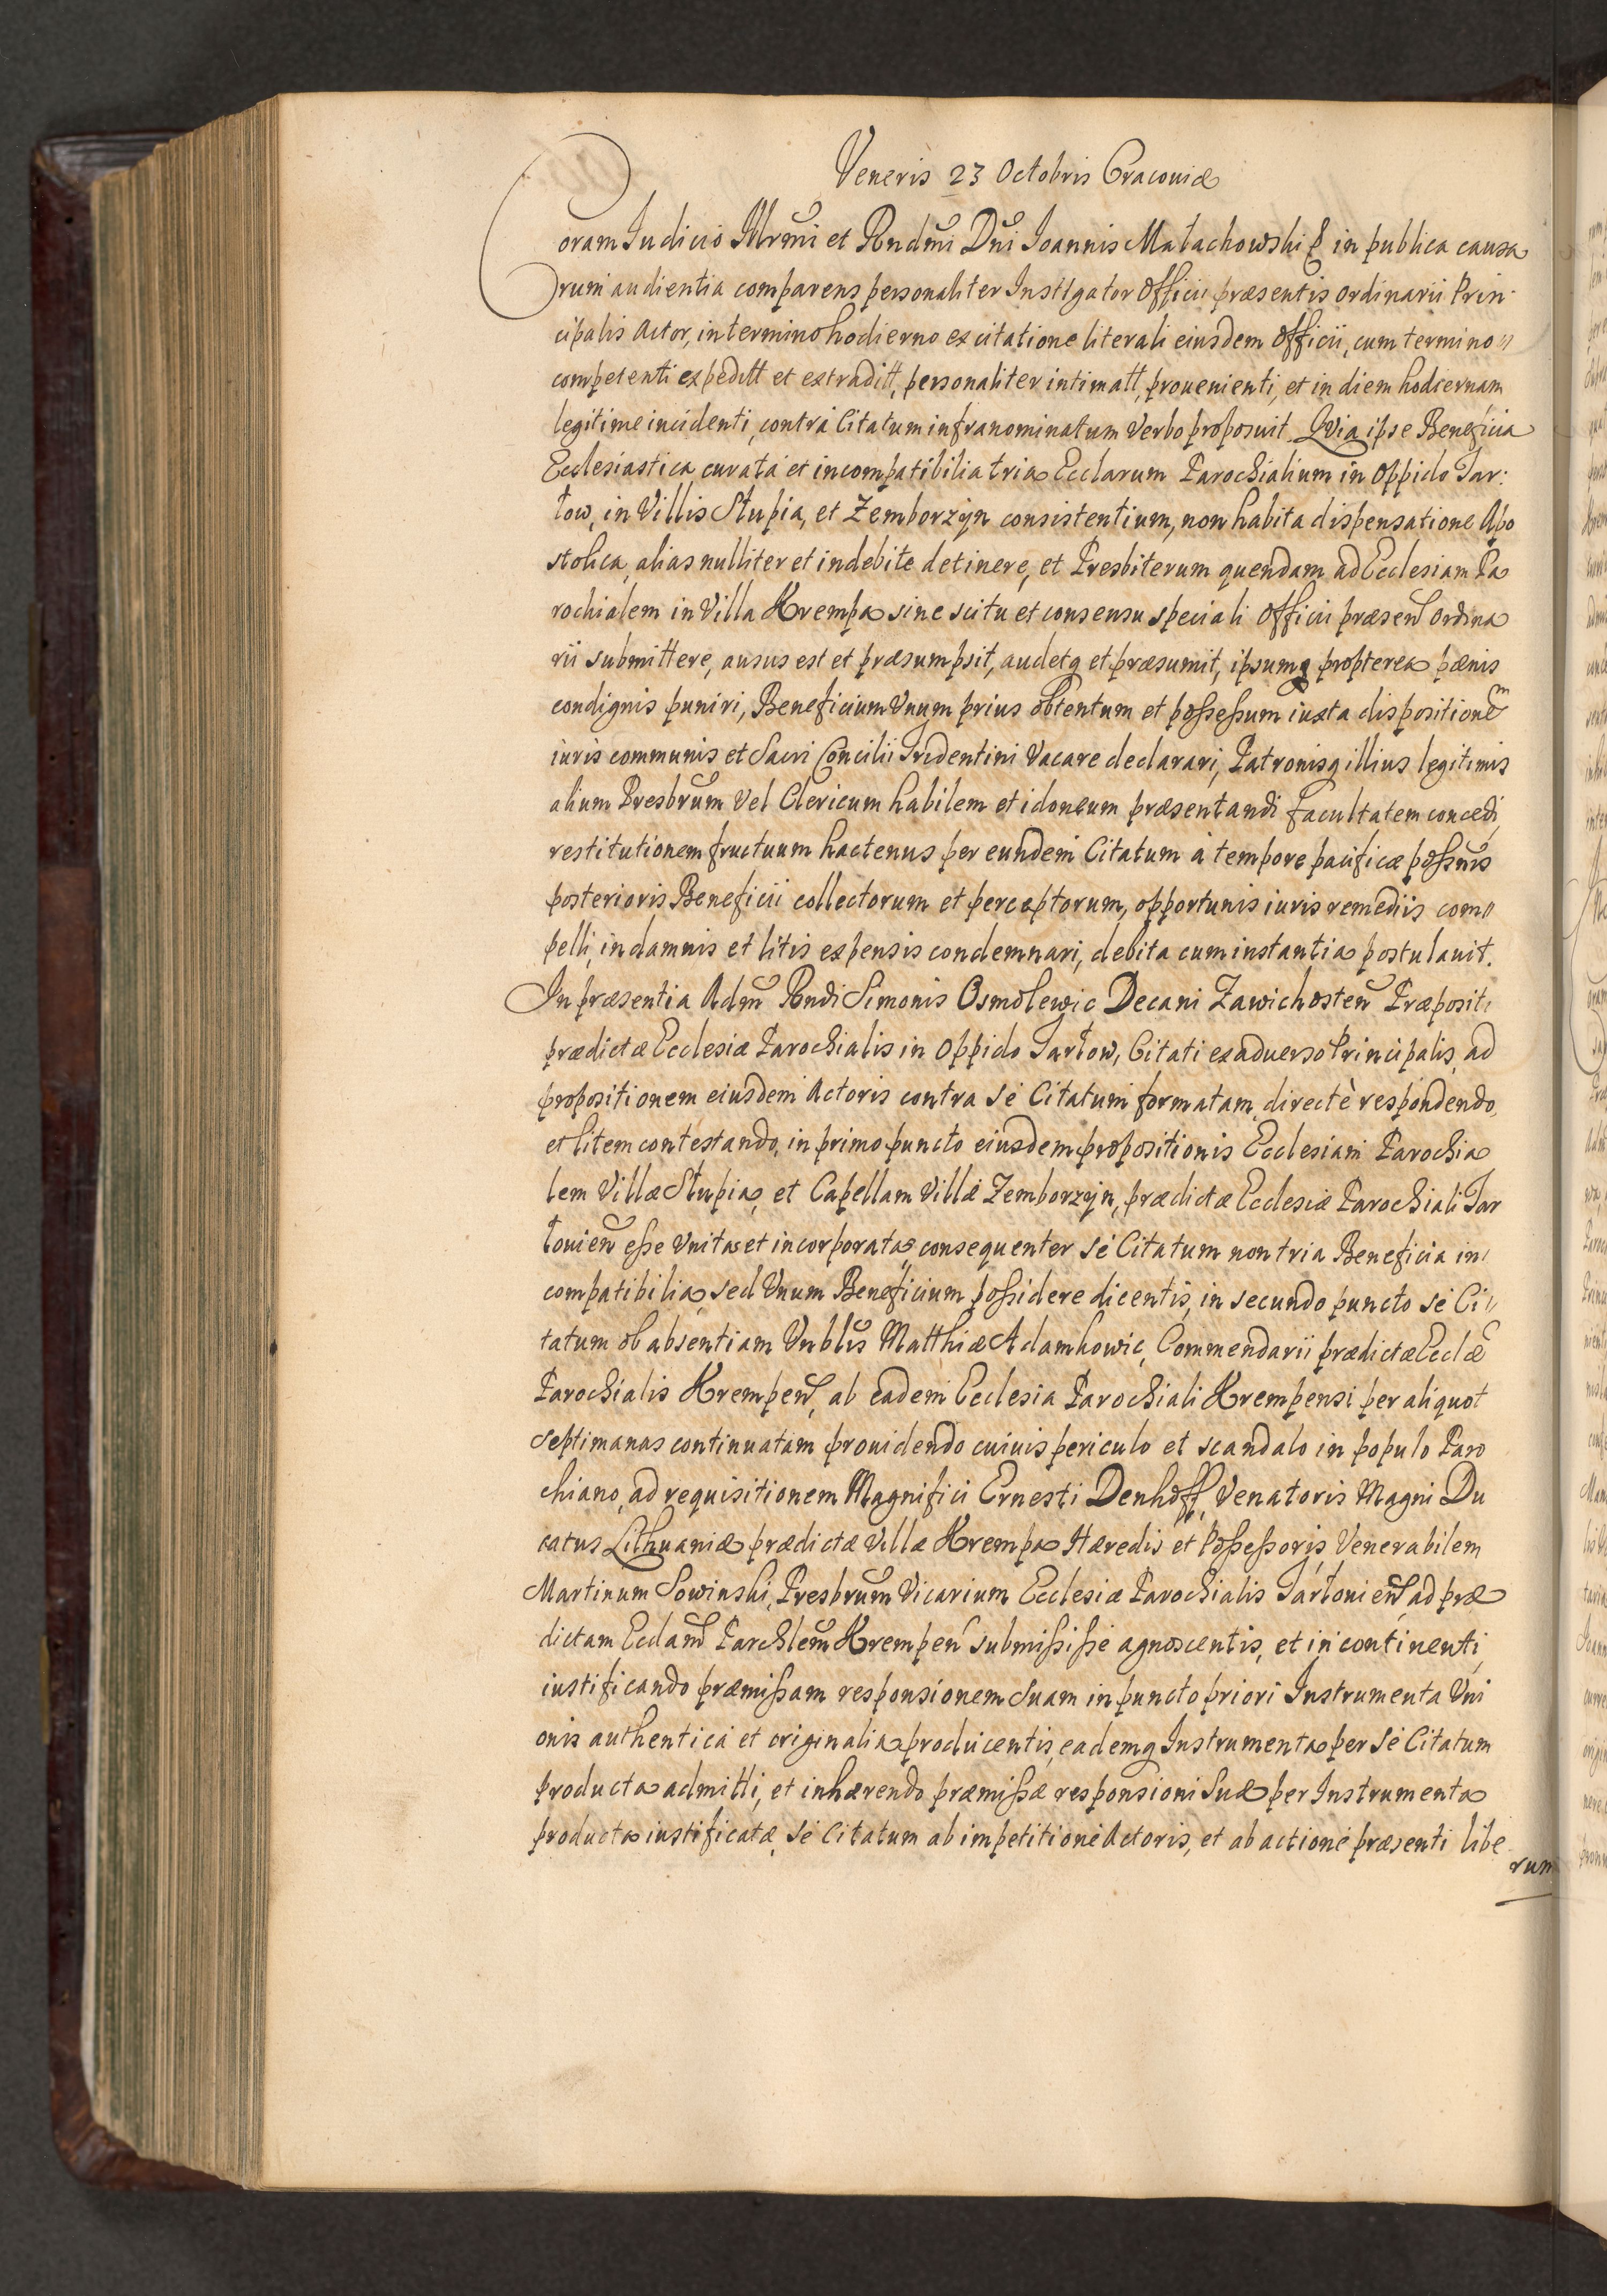 Veneris 23 Octobris Cracouiæ
Coram Iudicio Illrmi et Rndmi Dni Ioannis Małachowski & in publica causa
rum audientia comparens personaliter Instigator Officii præsentis ordinarii Prin
cipalis Actor, in termino hodierno ex citatione literali eiusdem Officii, cum termino
competenti expeditt et extraditt, personaliter intimatt, prouenienti, et in diem hodiernam
legitime incidenti, contra Citatum infranominatum verbo proposuit. Qvia ipse Beneficia
Ecclesiastica curata et incompatibilia tria Ecclarum Parochialium in Oppido Tar:
łow, in Villis Słupia, et Zemborzyn consistentium, non habita dispensatione Apo
stolica, alias nulliter et indebite detinere, et Presbiterum quendam ad Ecclesiam Pa
rochialem in Villa Krempa sine scitu et consensu speciali Officii præsen Ordina
rii submittere, ausus est et præsumpsit, audetq et præsumit, ipsumq propterea pænis
condignis puniri, Beneficium Vnum prius obtentum et possessum iuxta dispositionem
iuris communis et Sacri Concilii Tridentini Vacare declarari, Patronisq illius legitimis
alium Presbrum Vel Clericum habilem et idoneum præsentandi facultatem concedi,
restitutionem fructuum hactenus per eundem Citatum à tempore pacificæ possnis
posterioris Beneficii collectorum et perceptorum, opportunis iuris remediis com
pelli, in damnis et litis expensis condemnari, debita cum instantia postulauit.
In præsentia Adm Rndi Simonis Osmolewic Decani Zawichosten Præpositi
prædictæ Ecclesiæ Parochialis in Oppido Tarłow, Citati ex aduerso Principalis, ad
propositionem eiusdem Actoris contra se Citatum formatam, directè respondendo,
et litem contestando, in primo puncto eiusdem propositionis Ecclesiam Parochia
lem Villæ Słupia, et Capellam Villæ Zemborzyn, prædictæ Ecclesiæ Parochiali Tar
łouien esse Vnitas et incorporatas, consequenter se Citatum non tria Beneficia in
compatibilia, sed Vnum Beneficium possidere dicentis, in secundo puncto se Ci
tatum ob absentiam Vnblis Matthiæ Adamkowic, Commendarii prædictæ Ecclæ
Parochialis Krempen, ab eadem Ecclesia Parochiali Krempensi per aliquot
septimanas continuatam prouidendo cuiuis periculo et scandalo in populo Paro
chiano, ad requisitionem Magnifici Ernesti Denhoff, Venatoris Magni Du
catus Lithuaniæ prædictæ Villæ Krempa Hæredis et Possessoris, Venerabilem
Martinum Sowinski, Presbrum Vicarium Ecclesiæ Parochialis Tarłouien, ad præ
dictam Ecclam Parchlem Krempen submississe agnoscentis, et in continenti,
iustificando præmissam responsionem Suam in puncto priori Instrumenta Vni
onis authentica et originalia producentis, eademq Instrumenta per se Citatum
producta admitti, et inhærendo præmissæ responsioni Suæ per Instrumenta
producta iustificatæ, se Citatum ab impetitione Actoris, et ab actione præsenti libe
rum